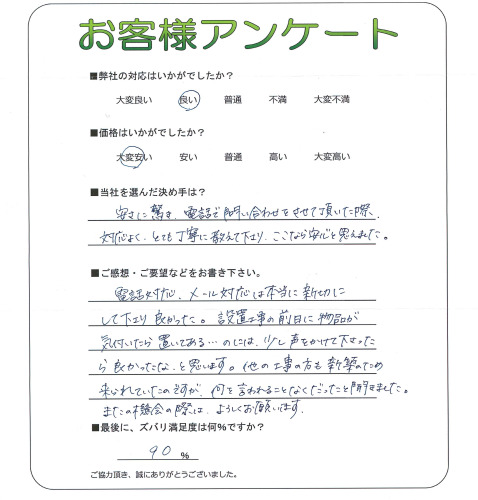 お客様アンケート
■弊社の対応はいかがでしたか?
大変良い 良い 普通 不満 大変不満
■価格はいかがでしたか?
大変安い 安い 普通 高い 大変高い
■当社を選んだ決め手は?
安さに驚き、電話で問い合わせをさせて頂いた際、
対応よく、とても丁寧に教えて下さり、ここなら安心と思えました。
■ご感想・ご要望などをお書き下さい。
電話対応、メール対応は本当に親切に
して下さり良かった。設置工事の前日に物品が
気付いたら置いてある…のには、少し声をかけて下さった
ら良かったな、と思います。他の工事の方も新築のため
来られていたのですが、何も言われることなくだったと聞きました。
またの機会の際は、よろしくお願いします。
■最後に、ズバリ満足度は何%ですか?
90 %
ご協力頂き、誠にありがとうございました。